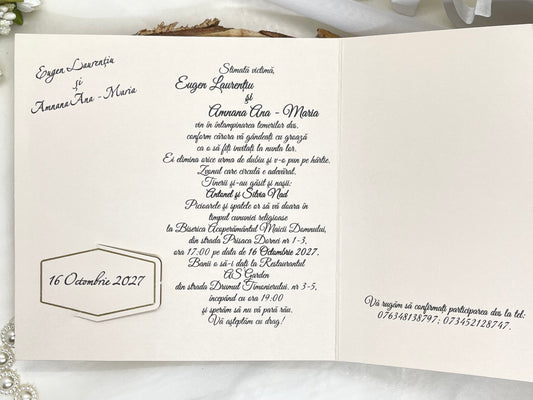 Eugen Laurențiu
și
Amnana Ana - Maria
16 Octombrie 2027
Stimată victimă,
Eugen Laurențiu
și
Amnana Ana - Maria
vin în întâmpinarea temerilor dvs.
conform cărora vă gândeați cu groază
ca o să fiți invitați la nunta lor.
Ei elimina orice urma de dubiu și v-o pun pe hârtie.
Zvonul care circulă e adevărat.
Tinerii și-au găsit și nașii:
Antonel și Silvia Nad
Picioarele și spatele or să vă doara în
timpul cununiei religioase
la Biserica Acoperământul Maicii Domnului,
din strada Prisaca Dornei nr 1-3,
ora 17:00 pe data de 16 Octombrie 2027.
Banii o să-i dați la Restaurantul
AS Garden
din strada Drumul Timonierului, nr 3-5,
începând cu ora 19:00
și sperăm să nu vă pară rău.
Vă așteptăm cu drag!
Vă rugăm să confirmați participarea dvs la tel:
076348138797; 073452128747.